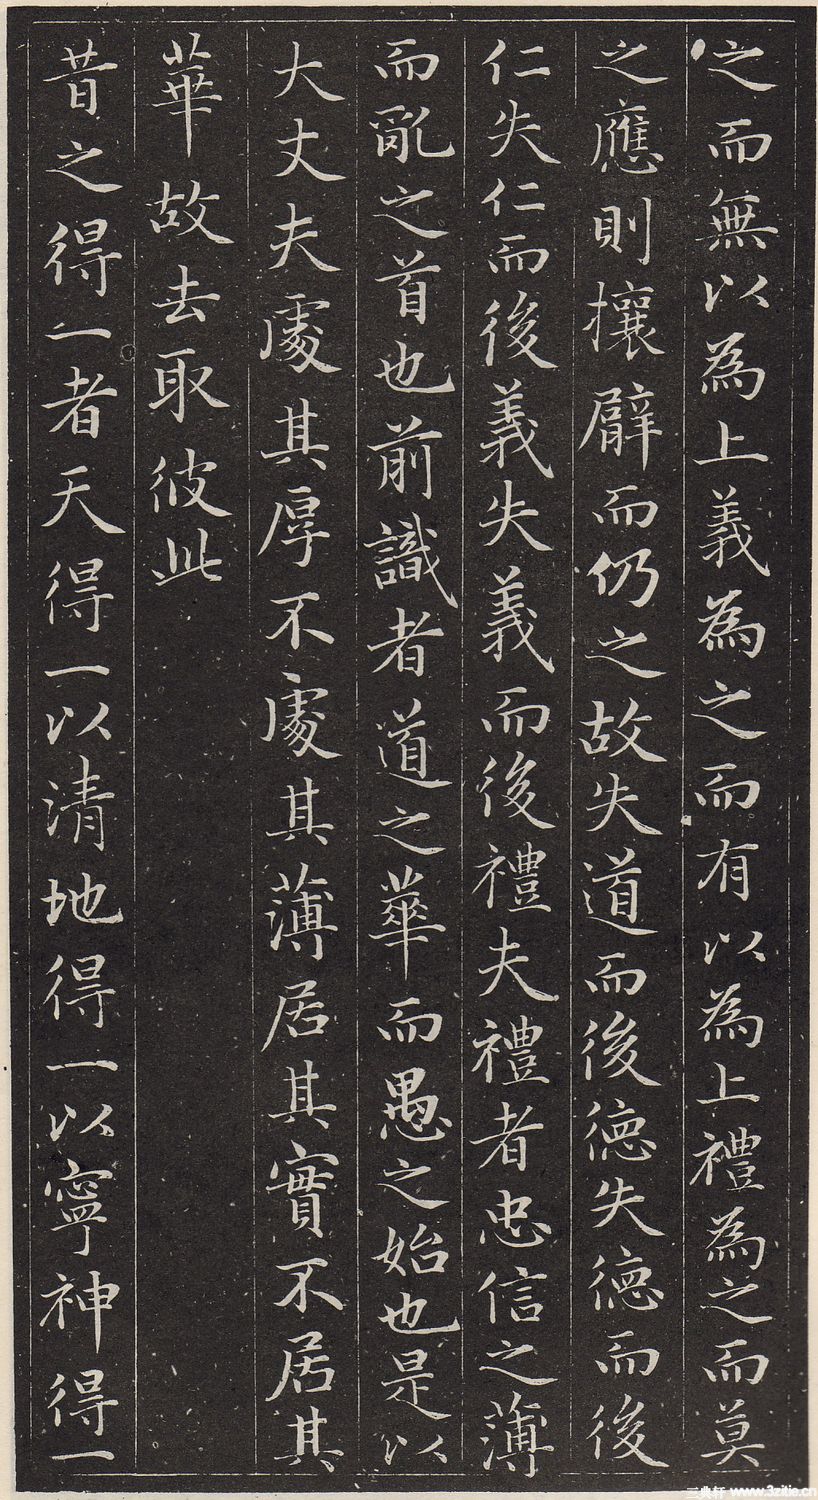 之而無以為上義為之而有以為上禮為之而莫
之應則攘臂而仍之故失道而後德失德而後
仁失仁而後義失義而後禮夫禮者忠信之薄
而亂之首也前識者道之華而愚之始也是以
大丈夫處其厚不處其薄居其實不居其
華故去取彼此
昔之得一者天得一以清地得一以寧神得一
三典軒 www.3zitie.cn